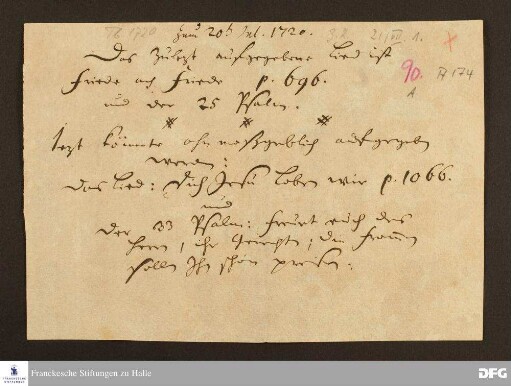 zum 20t Jul. 1720.
Das zuletzt aufgegebene Lied ist
Friede ach Friede p. 696.
und der 25 Psalm.
90.
A
174
Jetzt könnte ohnmaßgeblich aufgegeben
werden:
das Lied: Dich Jesu loben wir p. 1066.
und
Der 33 Psalm: Freuet euch des
Herrn, ihr Gerechten; die Frommen
sollen Ihn schön preisen.
Franckesche Stiftungen zu Halle
DFG